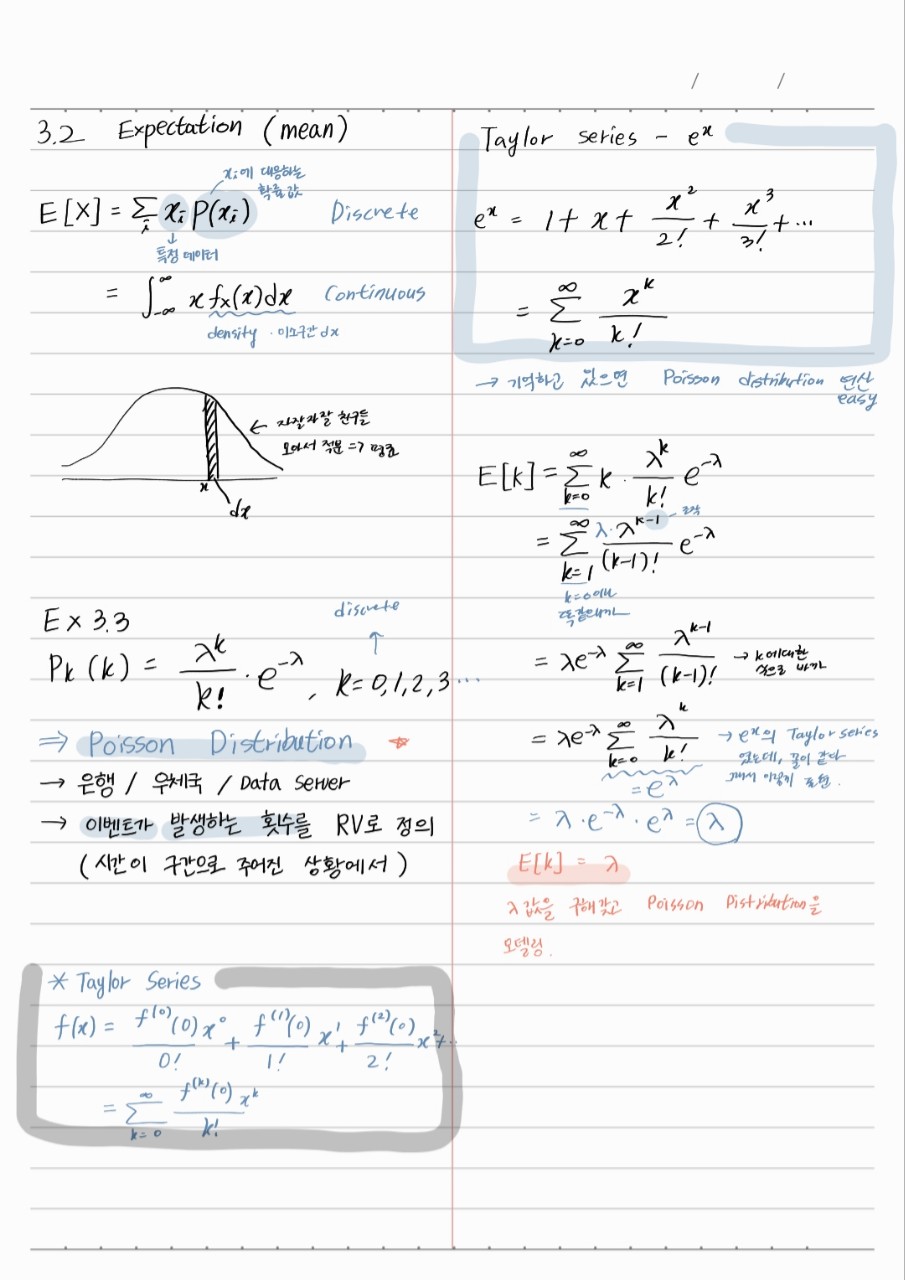 / /
3.2 Expectation (mean)
xᵢ에 대응하는
확률 값
E[X] = Σᵢ xᵢ P(xᵢ) Discrete
특정 데이터
= ∫_{-∞}^{∞} x fx(x)dx Continuous
density · 미소구간 dx
← 자잘자잘 친구들
모아서 적분 => 평균
x
dx
Ex 3.3
discrete
↑
Pk(k) = λ^k / k! · e^{-λ} , k = 0,1,2,3 ...
⇒ Poisson Distribution ☆
→ 은행 / 우체국 / Data Server
→ 이벤트가 발생하는 횟수를 RV로 정의
(시간이 구간으로 주어진 상황에서)
* Taylor Series
f(x) = f^{(0)}(0)/0! x^0 + f^{(1)}(0)/1! x^1 + f^{(2)}(0)/2! x^2 + ..
= Σ_{k=0}^{∞} f^{(k)}(0)/k! x^k
Taylor series - e^x
e^x = 1 + x + x^2/2! + x^3/3! + ...
= Σ_{k=0}^{∞} x^k / k!
→ 기억하고 있으면 Poisson distribution 연산
easy
E[k] = Σ_{k=0}^{∞} k · λ^k / k! e^{-λ}
= Σ_{k=1}^{∞} λ·λ^{k-1} / (k-1)! e^{-λ}
k=0에서
= λe^{-λ} Σ_{k=1}^{∞} λ^{k-1} / (k-1)! → k에 대한
식으로 바꿔
= λe^{-λ} Σ_{k=0}^{∞} λ^k / k! → e^x의 Taylor series
였는데, 꼴이 같다
그래서 이렇게 표현.
= e^λ
= λ · e^{-λ} · e^λ = λ
E[k] = λ
λ 값을 구해갖고 Poisson Distribution을
모델링.